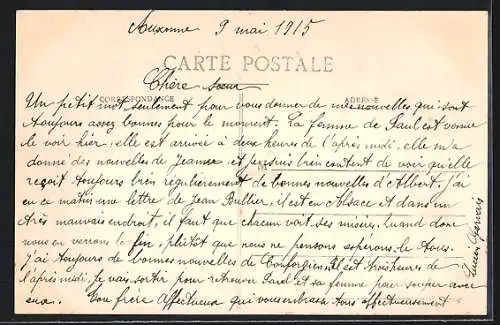 Auxonne 9 mai 1915
CARTE POSTALE
Chère sœur
CORRESPONDANCE ADRESSE
Un petit mot seulement pour vous donner de mes nouvelles qui sont
toujours assez bonnes pour le moment. La femme de Paul est venue
le voir hier, elle est arrivée à deux heures de l'après midi, elle m'a
donné des nouvelles de Jeanne, et je suis bien content de voir qu'elle
reçoit toujours bien régulièrement de bonnes nouvelles d'Albert. J'ai
eu ce matin une lettre de Jean Bullier, il est en Alsace et dans un
très mauvais endroit, il faut que chacun voit ses misères. Quand donc
nous en verrons la fin, plutôt que nous ne pensons esperons le tous.
j'ai toujours de bonnes nouvelles de Conforgien. Il est trois heures de
l'après midi, je vais sortir pour retrouver Paul et sa femme pour souper avec
eux. Ton frère Affectueux qui vous embrasse tous affectueusement
Lucien Gervais